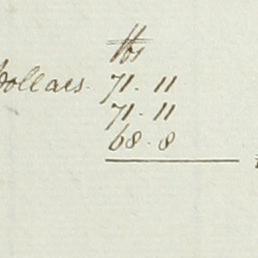 lbs
Dollars. 71. 11
71. 11
68. 8